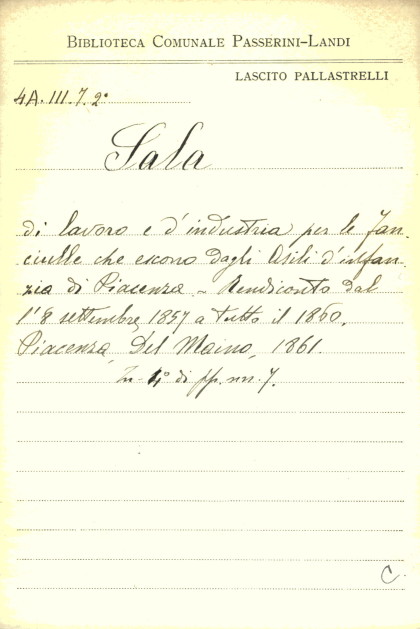 BIBLIOTECA COMUNALE PASSERINI-LANDI
LASCITO PALLASTRELLI
4A. III. 7. 2º
Sala
di lavoro e d'industria per le fan-
ciulle che escono dagli Asili d'infan-
zia di Piacenza - Rendiconto dal
1º 8 settembre 1857 a tutto il 1860.
Piacenza, Del Maino, 1861.
In 4º di pp. nn. 7.
C.